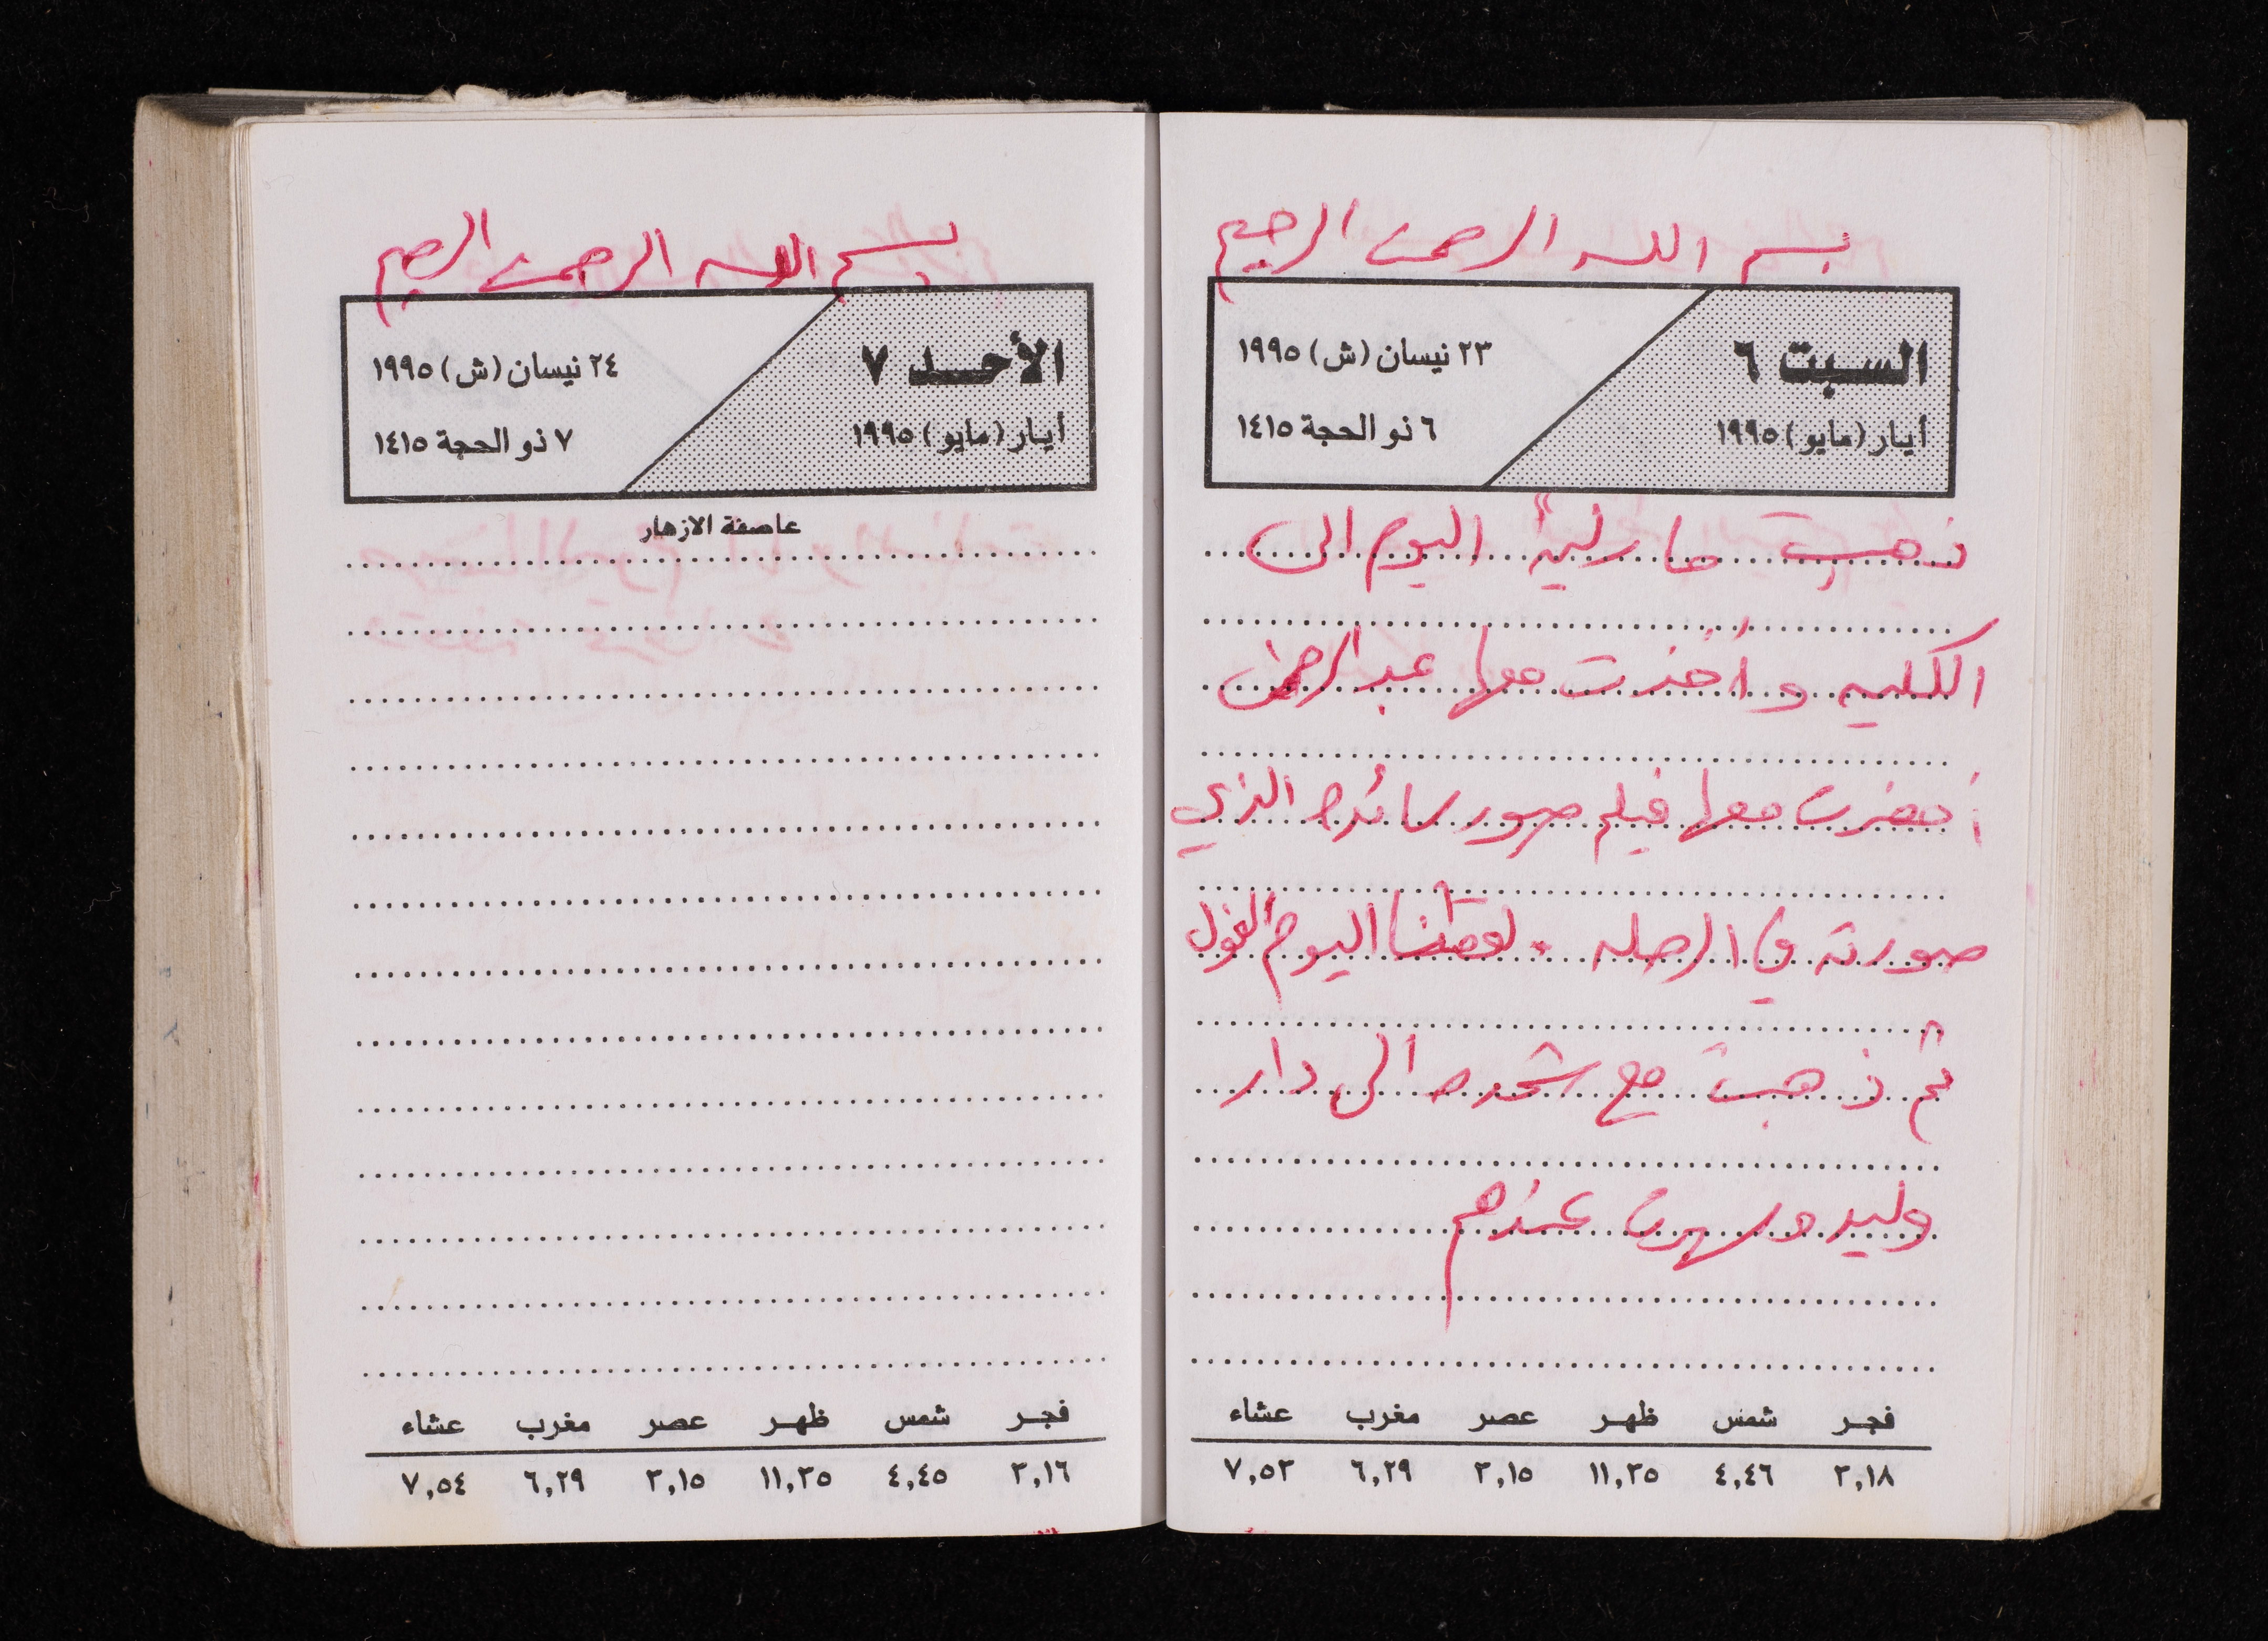 بسم الله الرحمن الرحيم
السبت ٦
أيار (مايو) ١٩٩٥
٢٣ نيسان (ش) ١٩٩٥
٦ ذو الحجة ١٤١٥
ذهبت مارلية اليوم الى
الكليه وأخذت معها عبد الرحمن
أحضرت معها فيلم صور سائده الذي
صورته في الرحله . لقطنا اليوم الفول
ثم ذهبت مع شحده الى دار
وليد وسهرت عندهم
فجر شمس ظهر عصر مغرب عشاء
٣,١٨ ٤,٤٦ ١١,٣٥ ٣,١٥ ٦,٢٩ ٧,٥٣
بسم الله الرحمن الرحيم
الأحد ٧
أيار (مايو) ١٩٩٥
٢٤ نيسان (ش) ١٩٩٥
٧ ذو الحجة ١٤١٥
عاصفة الازهار
فجر شمس ظهر عصر مغرب عشاء
٣,١٦ ٤,٤٥ ١١,٣٥ ٣,١٥ ٦,٢٩ ٧,٥٤